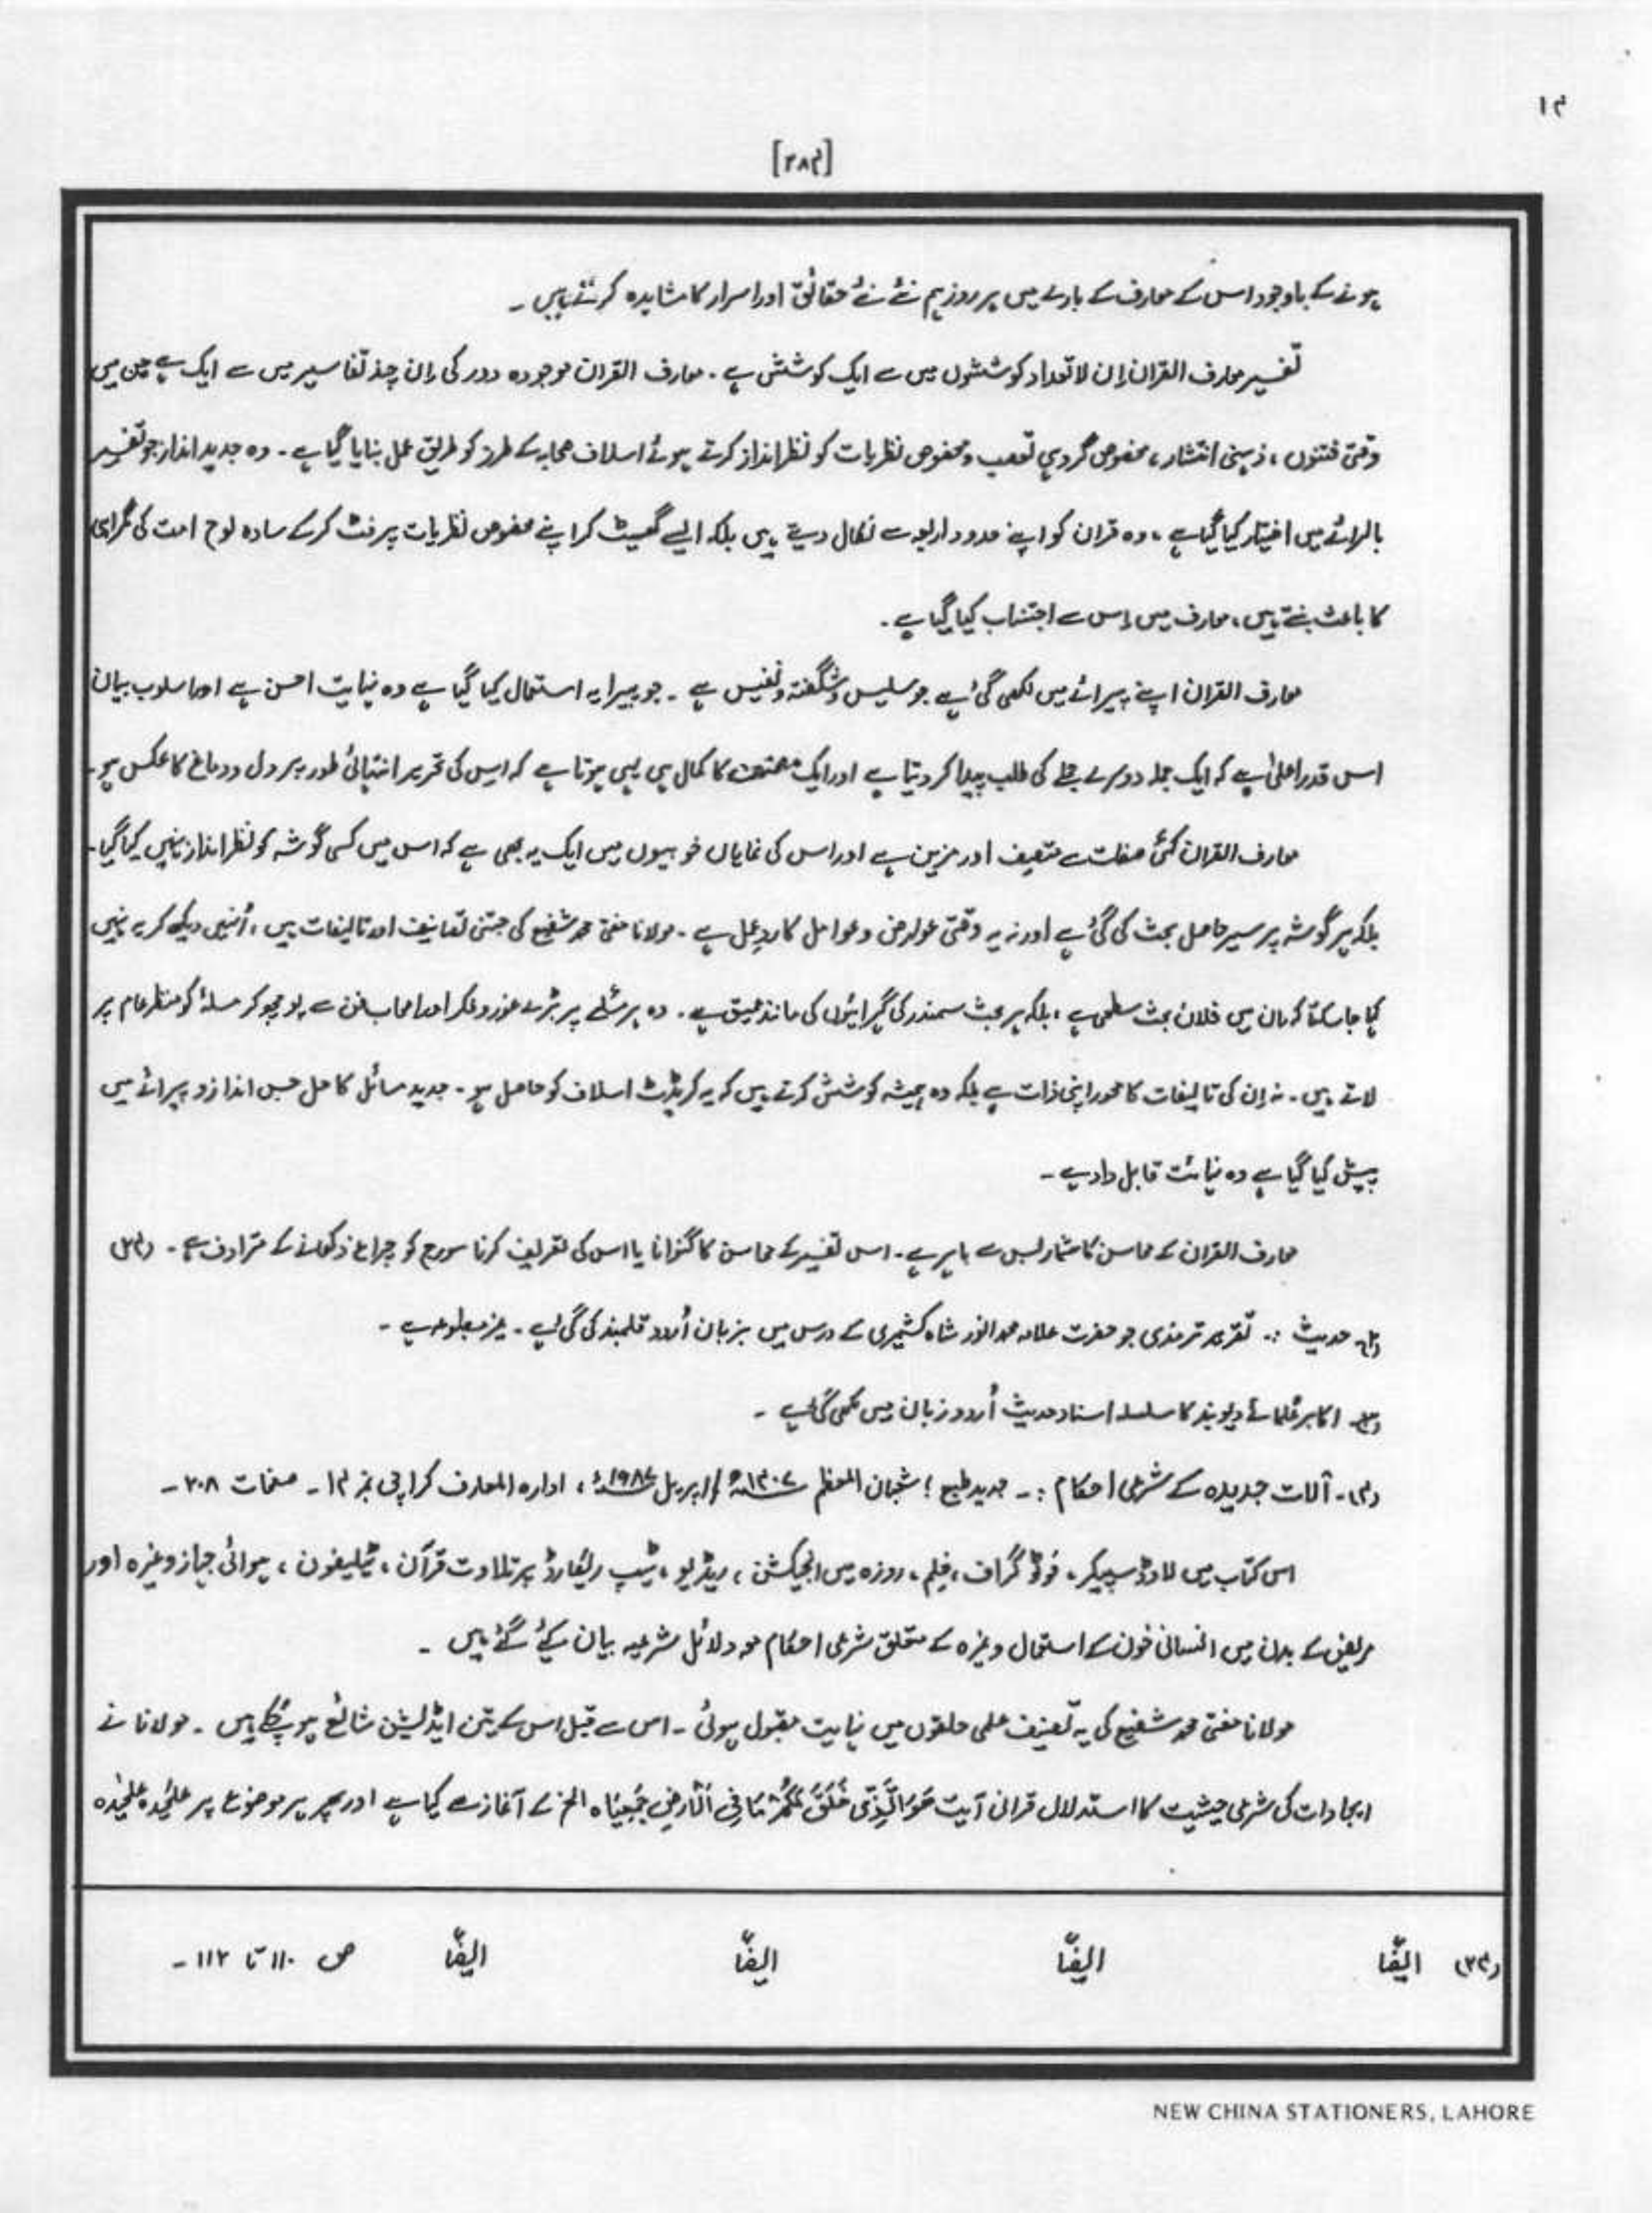 ۱۴
[۲۸۴]
ہونے کے باوجود اس کے معارف کے بارے میں ہر روز ہم نئے نئے حقائق اور اسرار کا مشاہدہ کرتے ہیں ۔
تفسیر معارف القران اِن لاتعداد کوششوں میں سے ایک کوشش ہے ۔ معارف القران موجودہ دور کی اِن چند تفاسیر میں سے ایک ہے جن میں
وقتی فتنوں ، ذہنی انتشار ، مخصوص گروہی تعصب و مخصوص نظریات کو نظر انداز کرتے ہوئے اسلاف صحابہ کے طرز کو طریق عمل بنایا گیا ہے ۔ وہ جدید انداز جو تفسیر
بالرائے میں اختیار کیا گیا ہے ، وہ قران کو اپنے حدود اربعہ سے نکال دیتے ہیں بلکہ ایسے گھسیٹ کر اپنے مخصوص نظریات پر فٹ کرکے سادہ لوح امت کی گمراہی
کا باعث بنتے ہیں ، معارف میں اِس سے اجتناب کیا گیا ہے ۔
معارف القران اپنے پیرائے میں لکھی گئی ہے جو سلیس و شگفتہ و نفیس ہے ۔ جو پیرایہ استعمال کیا گیا ہے وہ نہایت احسن ہے اور اسلوب بیان
اس قدر اعلیٰ ہے کہ ایک جملہ دوسرے جملے کی طلب پیدا کر دیتا ہے اور ایک مصنف کا کمال ہی یہی ہوتا ہے کہ اس کی تحریر انتہائی طور پر دل و دماغ کا عکس ہو ۔
معارف القران کئی صفات سے متصف اور مزین ہے اور اس کی نمایاں خوبیوں میں ایک یہ بھی ہے کہ اس میں کسی گوشہ کو نظر انداز نہیں کیا گیا ۔
بلکہ ہر گوشہ پر سیر حاصل بحث کی گئی ہے اور نہ یہ وقتی عوارض و عوامل کا ردِ عمل ہے ۔ مولانا مفتی محمد شفیع کی جتنی تصانیف اور تالیفات ہیں ، اُنہیں دیکھ کر یہ نہیں
کہا جا سکتا کہ ان میں فلاں بحث سطحی ہے ، بلکہ ہر بحث سمندر کی گہرائیوں کی مانند عمیق ہے ۔ وہ ہر مسئلے پر بڑے غور و فکر اور اصحاب فن سے پوچھ کر مسئلہ کو منظر عام پر
لاتے ہیں ۔ نہ اِن کی تالیفات کا محور اپنی ذات ہے بلکہ وہ ہمیشہ کوشش کرتے ہیں کہ یہ کریڈٹ اسلاف کو حاصل ہو ۔ جدید مسائل کا حل جس انداز و پیرائے میں
پیش کیا گیا ہے وہ نہائت قابل داد ہے ۔
معارف القران کے محاسن کا شمار بس سے باہر ہے ۔ اس تفسیر کے محاسن کا گنوانا یا اس کی تعریف کرنا سورج کو چراغ دکھانے کے مترادف ہے ۔ (۳۴)
(۲)۔ حدیث :۔ تقریر ترمذی جو حضرت علامہ محمد انور شاہ کشمیری کے درس میں بزبان اُردو قلمبند کی گئی ہے ۔ غیر مطبوعہ ہے ۔
(۳)۔ اکابر عُلمائے دیوبند کا سلسلہ اسناد حدیث اُردو زبان میں لکھی گئی ہے ۔
(۴)۔ آلات جدیدہ کے شرعی احکام :۔ جدید طبع ؛ شعبان المعظم ۱۴۰۷ھ / اپریل ۱۹۸۷ء ، ادارہ المعارف کراچی نمبر ۱۴ ۔ صفحات ۲۰۸ ۔
اس کتاب میں لاوڈ سپیکر ، فوٹو گراف ، فیلم ، روزہ میں انجیکشن ، ریڈیو ، ٹیپ ریکارڈ پر تلاوت قرآن ، ٹیلیفون ، ہوائی جہاز وغیرہ اور
مریض کے بدن میں انسانی خون کے استعمال وغیرہ کے متعلق شرعی احکام مع دلائل شرعیہ بیان کیے گئے ہیں ۔
مولانا مفتی محمد شفیع کی یہ تصنیف علمی حلقوں میں نہایت مقبول ہوئی ۔ اس سے قبل اس کے تین ایڈیشن شائع ہو چکے ہیں ۔ مولانا نے
ایجادات کی شرعی حیثیت کا استدلال قران آیت هُوَ الَّذِی خَلَقَ لَکُمْ مَا فِی الْاَرْضِ جَمِیْعًا ہ الخ کے آغاز سے کیا ہے اور پھر ہر موضوع پر علیٰحدہ علیٰحدہ
(۳۴) ایضًا ایضًا ایضًا ایضًا ص ۱۱۰ تا ۱۱۲ ۔
NEW CHINA STATIONERS, LAHORE